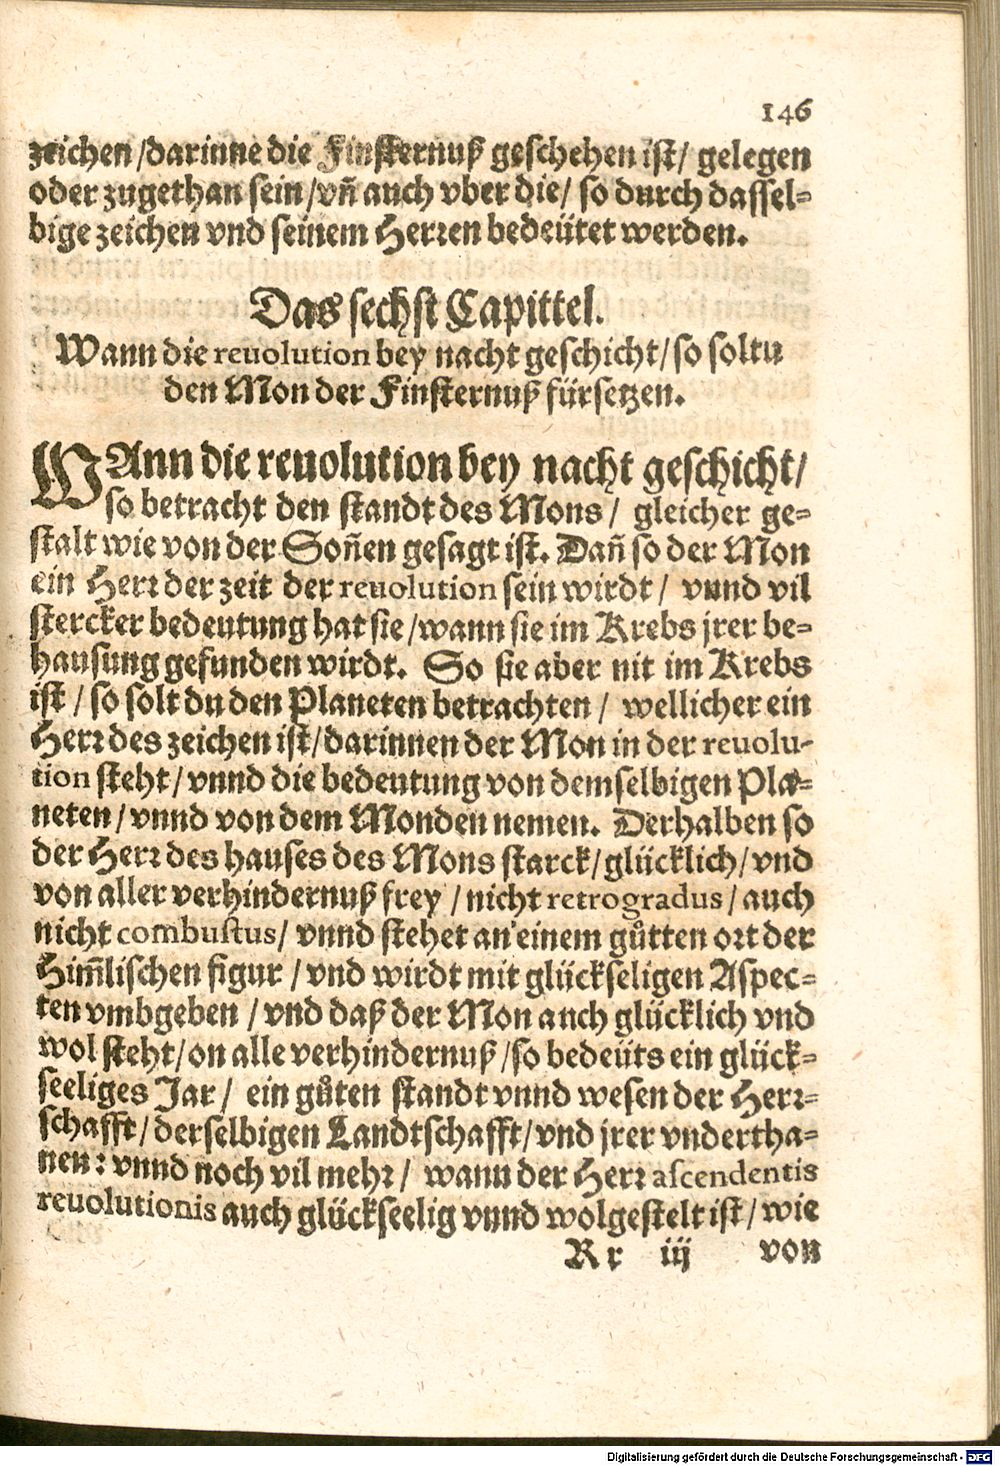 146
zeichen /darinne die Finsternuß geschehen ist/ gelegen
oder zugethan sein /vñ auch vber die/ so durch dassel-
bige zeichen vnd seinem Herren bedeütet werden.
Das sechst Capittel.
Wann die reuolution bey nacht geschicht/ so soltu
den Mon der Finsternuß fürsetzen.
WAnn die reuolution bey nacht geschicht/
so betracht den standt des Mons/ gleicher ge-
stalt wie von der Soñen gesagt ist. Dañ so der Mon
ein Herr der zeit der reuolution sein wirdt/ vnnd vil
stercker bedeutung hat sie /wann sie im Krebs jrer be-
hausung gefunden wirdt. So sie aber nit im Krebs
ist / so solt du den Planeten betrachten / wellicher ein
Herr des zeichen ist/darinnen der Mon in der reuolu-
tion steht/ vnnd die bedeutung von demselbigen Pla-
neten/vnnd von dem Monden nemen. Derhalben so
der Herr des hauses des Mons starck/glücklich/vnd
von aller verhindernuß frey /nicht retrogradus/ auch
nicht combustus/ vnnd stehet an einem gůtten ort der
Him̃lischen figur /vnd wirdt mit glückseligen Aspec-
ten vmbgeben / vnd daß der Mon auch glücklich vnd
wol steht/on alle verhindernuß /so bedeüts ein glück-
seeliges Jar/ ein gůten standt vnnd wesen der Herr-
schafft/derselbigen Landtschafft/vnd jrer vndertha-
nen: vnnd noch vil mehr/ wann der Herr ascendentis
reuolutionis auch glückseelig vnnd wolgestelt ist/ wie
Rr iij von
Digitalisierung gefördert durch die Deutsche Forschungsgemeinschaft - DFG